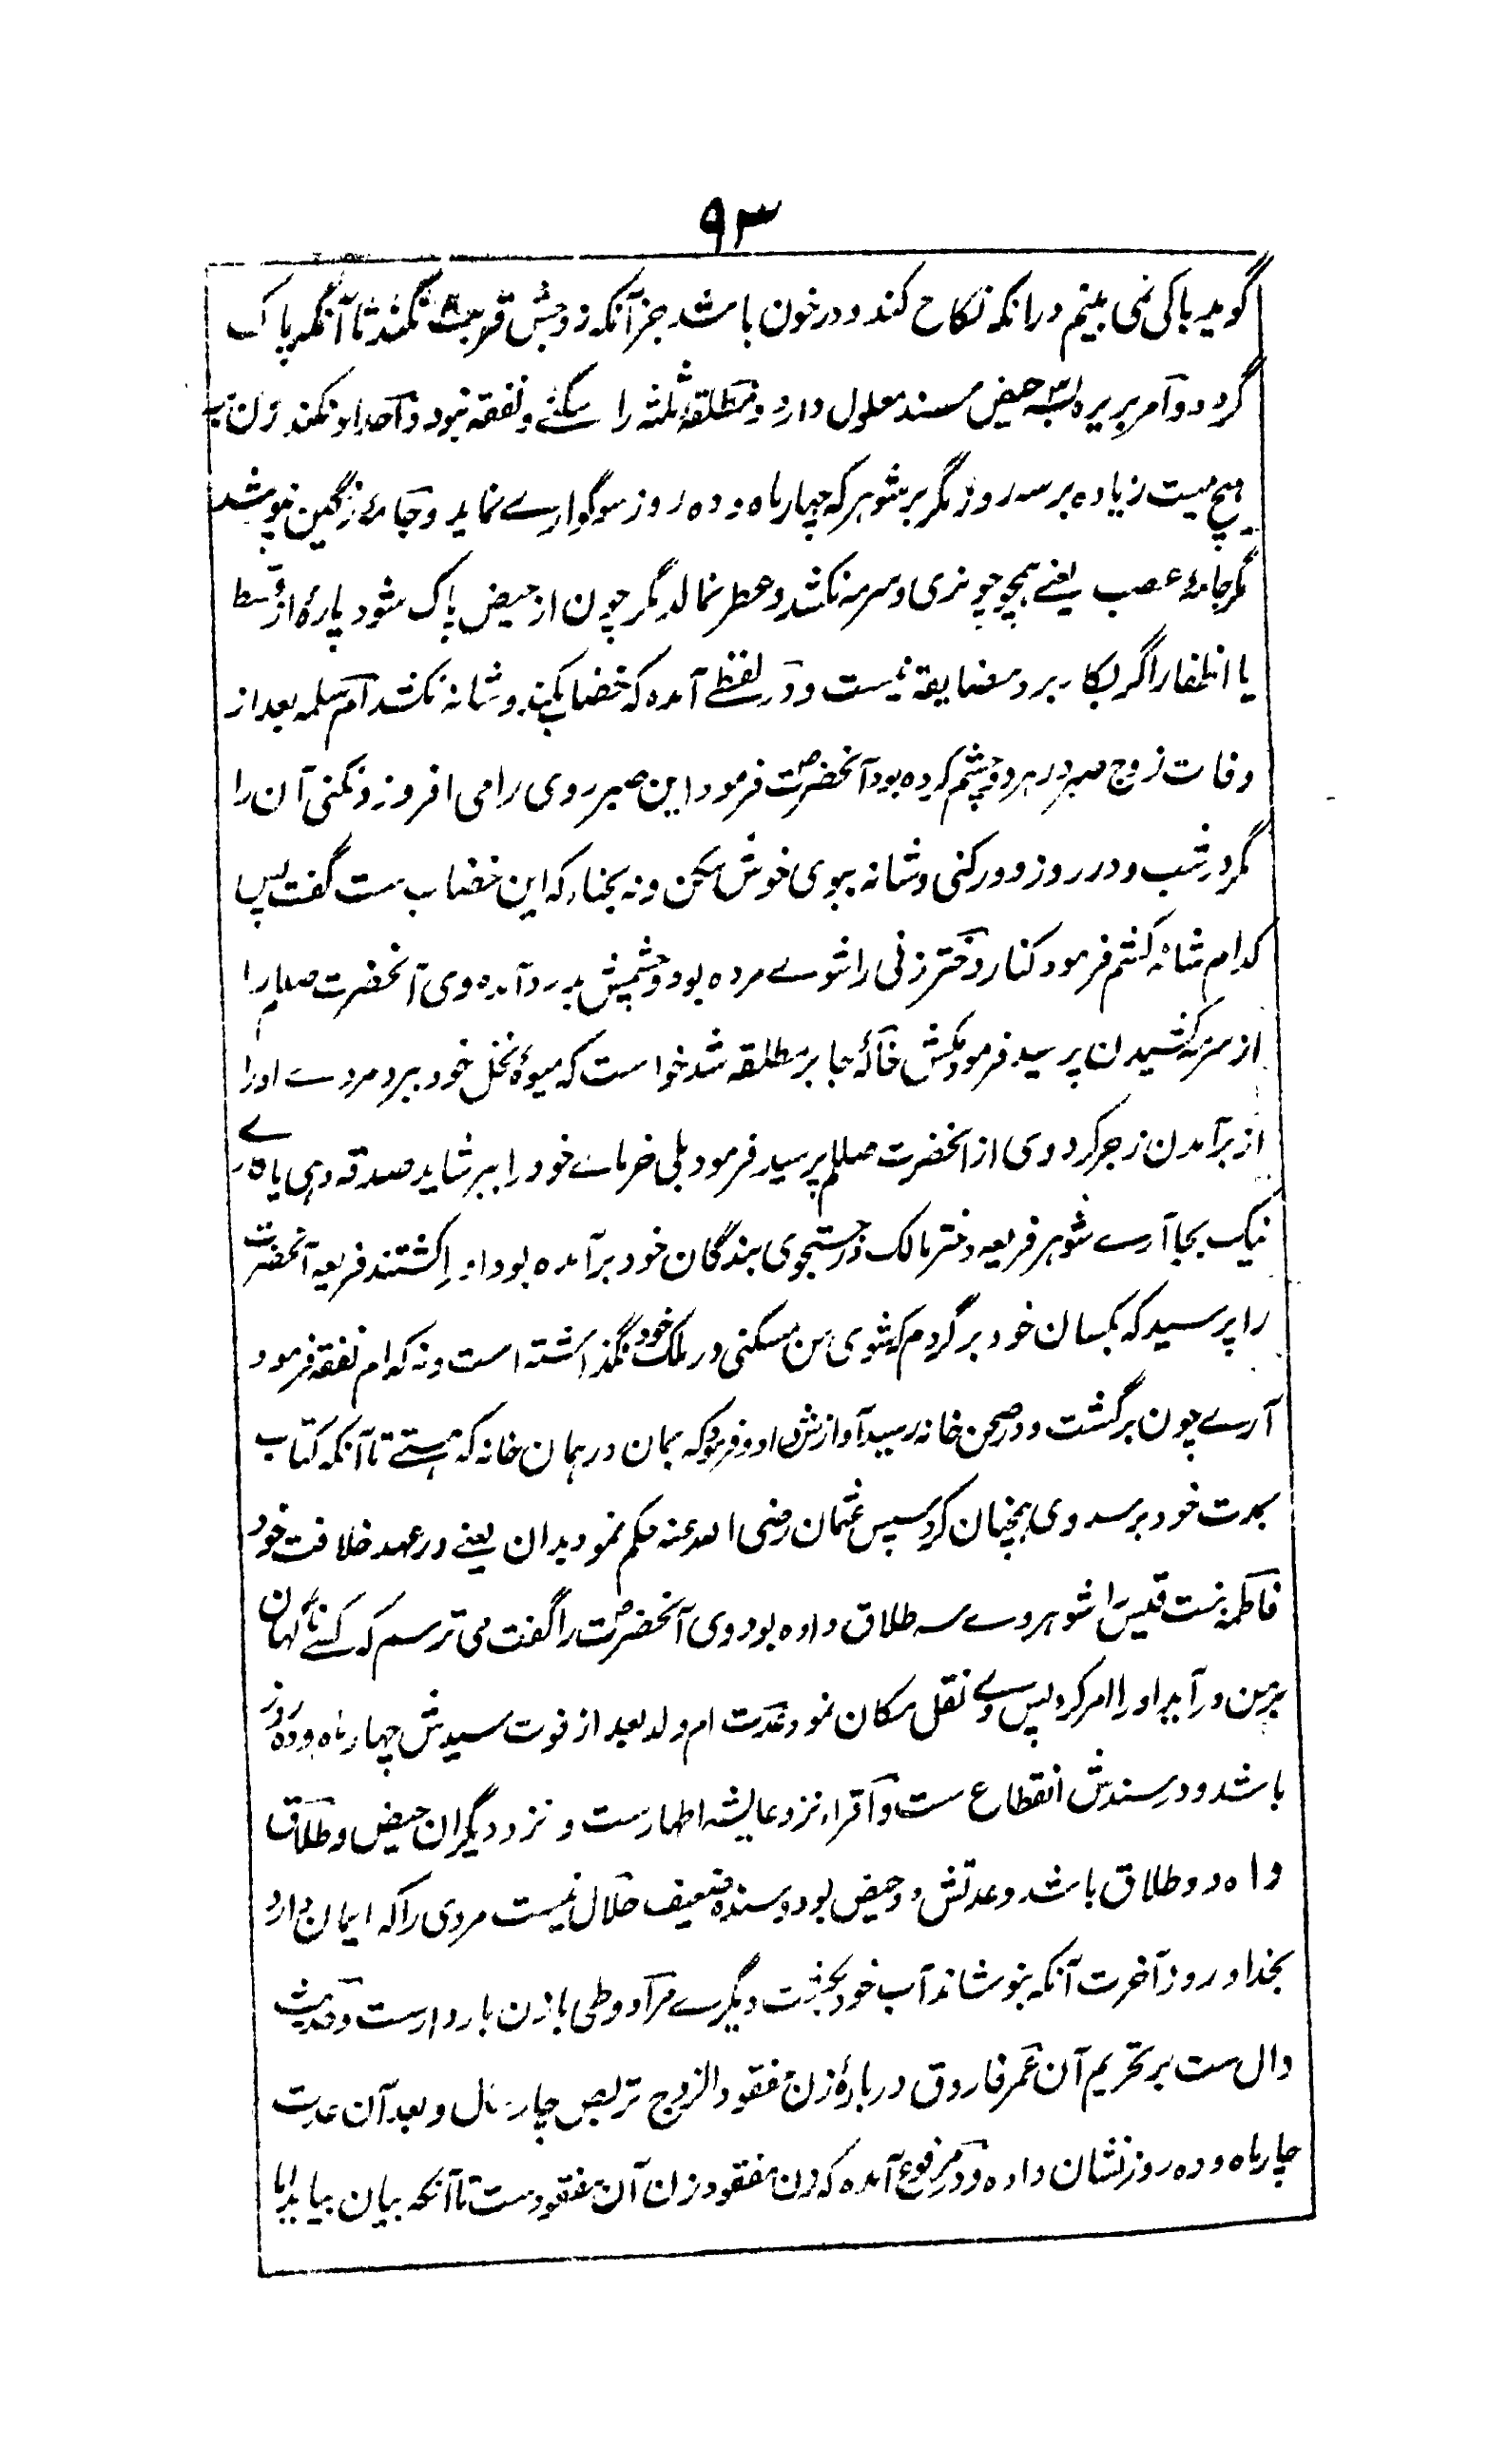 ۹۳
گوید باکی نمی بینم درانکه نکاح کند و در خون باشد جز آنکه زوجش قربت نکند تا آنکه پاک
گردد و امر بریره بسه حیض مسند معلول دارد و مطلقهٔ ثلثه را سکنے و نفقه نبود و احداد نکند زن بر
هیچ میت زیاده بر سه روز مگر بر شوهر که چهار ماه و ده روز سوگوارے نماید و جامهٔ رنگین نپوشد
مگر جامهٔ عصب یعنے همچو چونری و سرمه نکشد و عطر نمالد مگر چون از حیض پاک شود پارهٔ از قسط
یا اظفار اگر بکار برد مضایقه نیست و در لفظے آمده که خضاب نکند و شانه نکشد ام سلمه بعد از
وفات زوج صبر در هر دو چشم کرده بود آنحضرت فرمود این صبر روی را می افروزد نکنی آن را
مگر در شب و در روز دور کنی و شانه ببوی خوش مکن و نه بحناء که این خضاب ست گفت پس
کدام شانه کشم فرمود کنار دختر زنی را شوے مرده بود و چشمش بدرد آمده وی آنحضرت صلعم را
از سرمه کشیدن پرسید فرمود مکش خالهٔ جابر مطلقه شد خواست که میوهٔ نخل خود ببرد مردے او را
از برآمدن زجر کرد وی از آنحضرت صلعم پرسید فرمود بلی خرماے خود را ببر شاید صدقه دهی یا کارے
نیک بجا آرے شوهر فریعه دختر مالک در جستجوی بندگان خود برآمده بود او را کشتند فریعه آنحضرت
را پرسید که بکسان خود برگردم که شوی من مسکنی در ملک خود نگذاشته است و نه کدام نفقه فرمود
آرے چون برگشت و در صحن خانه رسید آوازش داد و فرمود که بمان در همان خانه که هستے تا آنکه کتاب
بمدت خود برسد وی همچنان کرد سپس عثمان رضی الله عنه حکم نمود بدان یعنے در عهد خلافت خود
فاطمه بنت قیس را شوهر وے سه طلاق داده بود وی آنحضرت را گفت می ترسم که کسے ناگهان
بر من درآید او را امر کرد پس وے نقل مکان نمود عدت ام ولد بعد از فوت سیدش چهار ماه و ده روز
باشد و در سندش انقطاع ست و اقراء نزد عایشه اطهارست و نزد دیگران حیض و طلاق
داه دو طلاق باشد و عدتش دو حیض بود و سنده ضعیف حلال نیست مردی را که ایمان دارد
بخدا و روز آخرت آنکه بنوشاند آب خود بکشت دیگرے مراد وطی با زن باردارست و حدیث
دال ست بر تحریم آن عمر فاروق دربارهٔ زن مفقود الزوج تربص چار سال و بعد آن عدت
چار ماه و ده روز نشان داده و در مرفوع آمده که زن مفقود زن آن مفقودست تا آنکه بیان بیاید اما